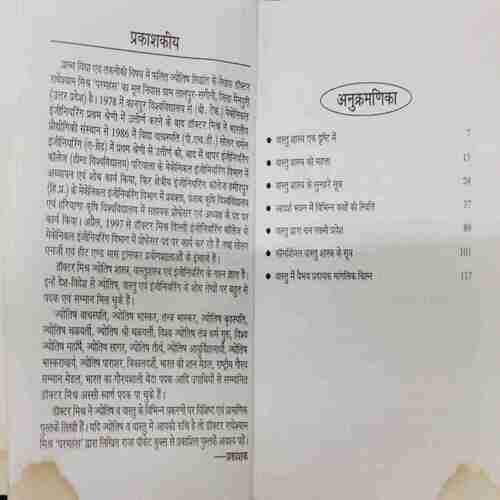 प्रकाशकीय
प्राच्य विद्या एवं तकनीकी विषय में फलित ज्योतिष सिद्धांत के निष्णात डॉक्टर
राधेश्याम मिश्र 'परमहंस' का मूल निवास ग्राम लालपुर-सगौनी, जिला मैनपुरी
(उत्तर प्रदेश) है। 1978 में कानपुर विश्वविद्यालय में (बी. टेक.) मैकेनिकल
इंजीनियरिंग प्रथम श्रेणी में उत्तीर्ण करने के बाद डॉक्टर मिश्र ने भारतीय
प्रौद्योगिकी संस्थान से 1986 में विद्या वाचस्पति (पी.एच.डी.) सोलर थर्मल
इंजीनियरिंग (ए-ग्रेड) में प्रथम श्रेणी से उत्तीर्ण की, बाद में थापर इंजीनियरिंग
कॉलेज (डीम्ड विश्वविद्यालय) पटियाला के मैकेनिकल इंजीनियरिंग विभाग में
अध्यापन एवं शोध कार्य किया, फिर क्षेत्रीय इंजीनियरिंग कॉलेज हमीरपुर
(हि.प्र.) के मैकेनिकल इंजीनियरिंग विभाग में प्रवक्ता, पंजाब कृषि विश्वविद्यालय
एवं हरियाणा कृषि विश्वविद्यालय में सहायक प्रोफेसर एवं अध्यक्ष के पद पर
कार्य किया। अप्रैल, 1997 से डॉक्टर मिश्र दिल्ली इंजीनियरिंग कॉलेज के
मैकेनिकल इंजीनियरिंग विभाग में प्रोफेसर पद पर कार्य कर रहे हैं तथा सोलर
एनर्जी एवं हीट एण्ड मास ट्रांसफर प्रयोगशालाओं के इंचार्ज हैं।
डॉक्टर मिश्र ज्योतिष शास्त्र, वास्तुशास्त्र एवं इंजीनियरिंग के गहन ज्ञाता हैं।
इन्हें देश-विदेश से ज्योतिष, वास्तु एवं इंजीनियरिंग के शोध लेखों पर बहुत से
पदक एवं सम्मान मिल चुके हैं।
ज्योतिष वाचस्पति, ज्योतिष भास्कर, तन्त्र भास्कर, ज्योतिष बृहस्पति,
ज्योतिष चक्रवर्ती, ज्योतिष श्री चक्रवर्ती, विश्व ज्योतिष तंत्र धर्म गुरू, विश्व
ज्योतिष महर्षि, ज्योतिष सागर, ज्योतिष तीर्थ, ज्योतिष आयुर्विद्याचार्य, ज्योतिष
भास्कराचार्य, ज्योतिष पाराशर, त्रिकालदर्शी, भारत की शान मेडल, राष्ट्रीय गौरव
सम्मान मेडल, भारत का गौरवशाली बेटा पदक आदि उपाधियों से सम्मानित
डॉक्टर मिश्र अस्सी स्वर्ण पदक पा चुके हैं।
डॉक्टर मिश्र ने ज्योतिष व वास्तु के विभिन्न प्रकरणों पर विशिष्ट एवं प्रामाणिक
पुस्तकें लिखी हैं। यदि ज्योतिष व वास्तु में आपकी रुचि है तो डॉक्टर राधेश्याम
मिश्र 'परमहंस' द्वारा लिखित राजा पॉकेट बुक्स से प्रकाशित पुस्तकें अवश्य पढ़ें।
—प्रकाशक
अनुक्रमणिका
● वास्तु शास्त्र एक दृष्टि में 7
● वास्तु शास्त्र की महत्ता
● वास्तु शास्त्र के सुनहरे सूत्र
● आदर्श भवन में विभिन्न कक्षों की स्थिति
● वास्तु द्वारा धन लक्ष्मी प्रवेश
● कॉमर्शियल वास्तु शास्त्र के सूत्र 101
● वास्तु में वैभव प्रदायक मांगलिक चिह्न 117